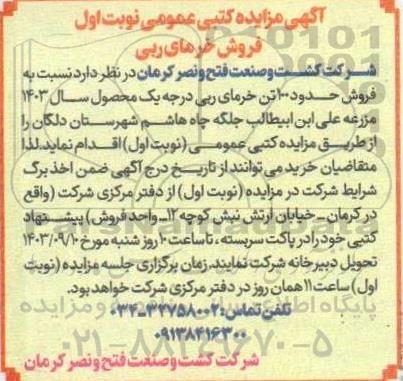 آگهی مزایده کتبی عمومی نوبت اول
فروش خرمای ربی
شرکت کشت و صنعت فتح و نصر کرمان در نظر دارد نسبت به
فروش حدود ۱۰۰ تن خرمای ربی درجه یک محصول سال ۱۴۰۳
مزرعه علی ابن ابیطالب جلگه چاه هاشم شهرستان دلگان را
از طریق مزایده کتبی عمومی (نوبت اول) اقدام نماید. لذا
متقاضیان خرید می توانند از تاریخ درج آگهی ضمن اخذ برگ
شرایط شرکت در مزایده (نوبت اول) از دفتر مرکزی شرکت (واقع
در کرمان - خیابان ارتش نبش کوچه ۱۲ - واحد فروش) پیشنهاد
کتبی خود را در پاکت سربسته، تا ساعت ۱۰ روز شنبه مورخ ۱۴۰۳/۰۹/۱۰
تحویل دبیرخانه شرکت نمایند. زمان برگزاری جلسه مزایده (نوبت
اول) ساعت ۱۱ همان روز در دفتر مرکزی شرکت خواهد بود.
تلفن تماس: ۳۲۷۵۸۰۰۲-۰۳۴
۰۹۱۳۸۴۱۶۳۰۰
شرکت کشت و صنعت فتح و نصر کرمان